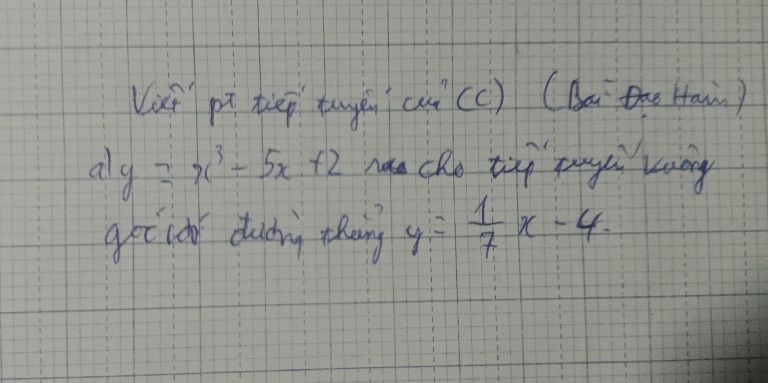 Viết pt tiếp tuyến của (C) (Bài Đạo Hàm)
a) y = x³ - 5x + 2 sao cho tiếp tuyến vuông
góc với đường thẳng y = 1/7 x - 4.